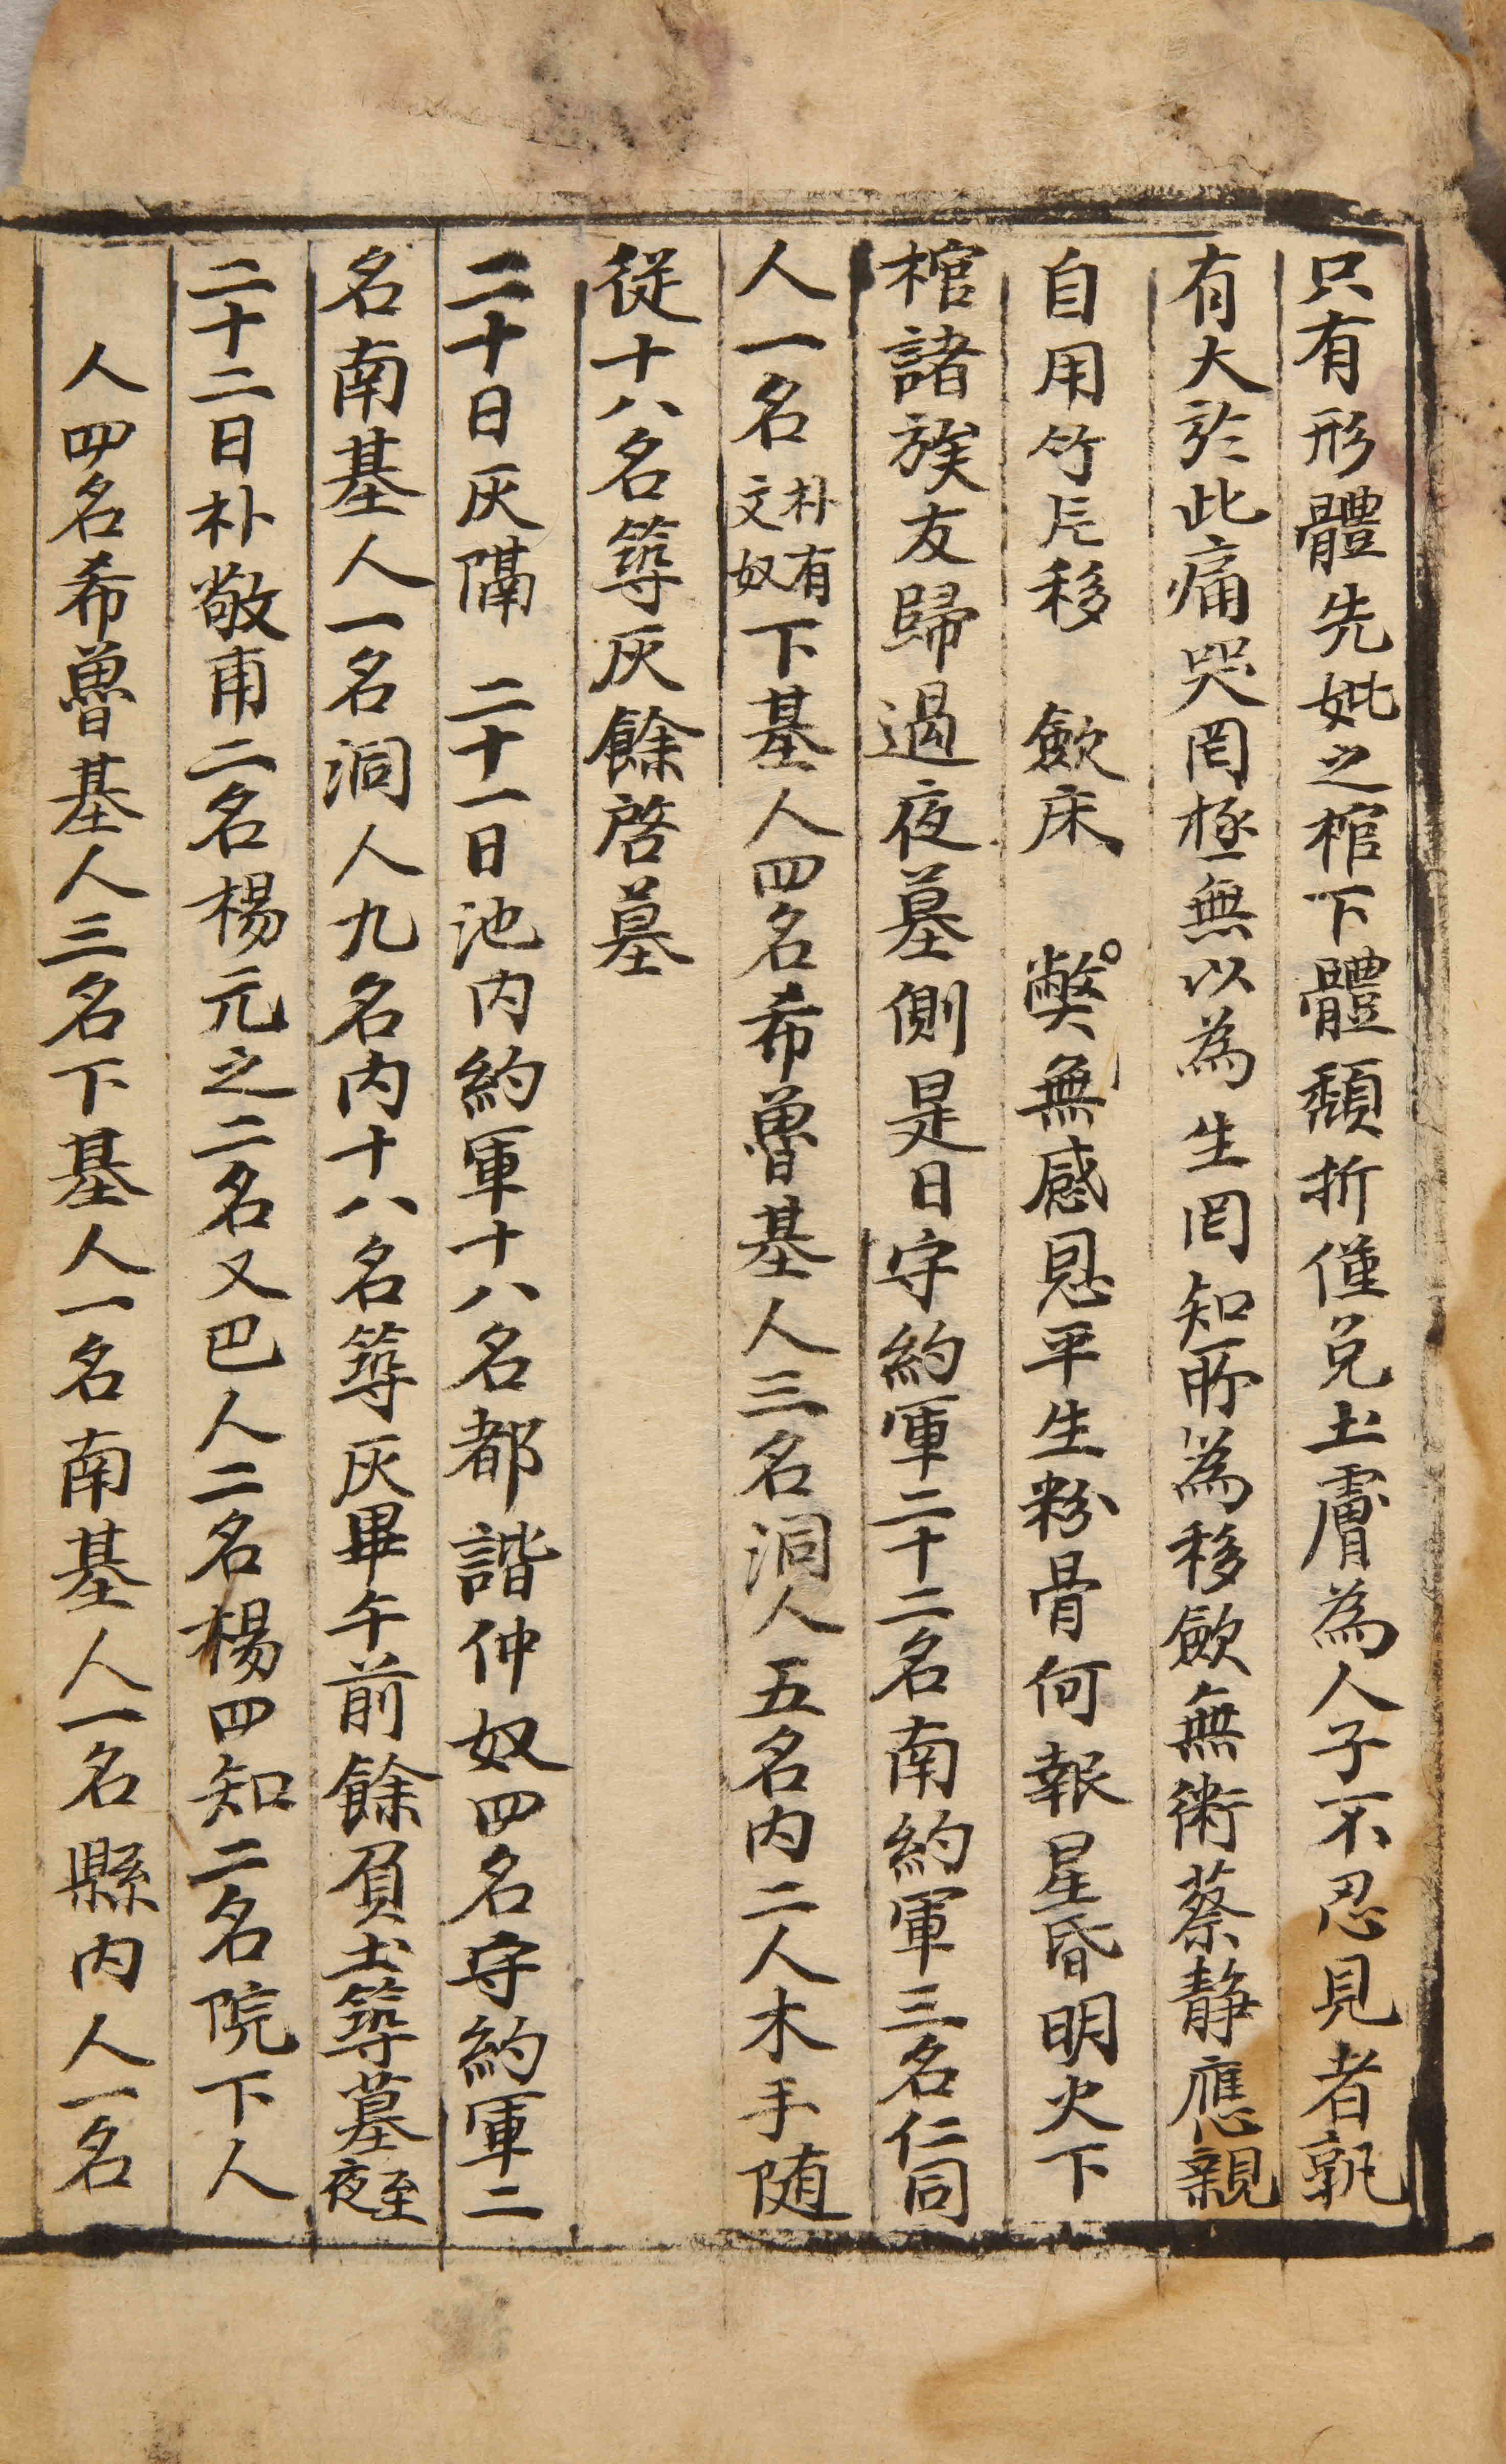 只有形體先妣之棺下體頽折僅免土膚為人子不忍見者孰
有大於此痛哭罔極無以為生罔知所為移斂無術蔡靜應親
自用竹片移 斂床 獘無感恩平生粉骨何報星昏明火下
棺諸族友歸過夜墓側是日守約軍二十二名南約軍三名仁同
人一名朴有文奴下基人四名希魯基人三名洞人五名內二人木手随
從十八名築灰餘啓墓
二十日灰隔 二十一日池內約軍十八名都諧仲奴四名守約軍二
名南基人一名洞人九名內十八名築灰畢午前餘負土築墓至夜
二十二日朴敬甫二名楊元之二名又巴人二名楊四知二名院下人
人四名希魯基人三名下基人一名南基人一名縣內人一名